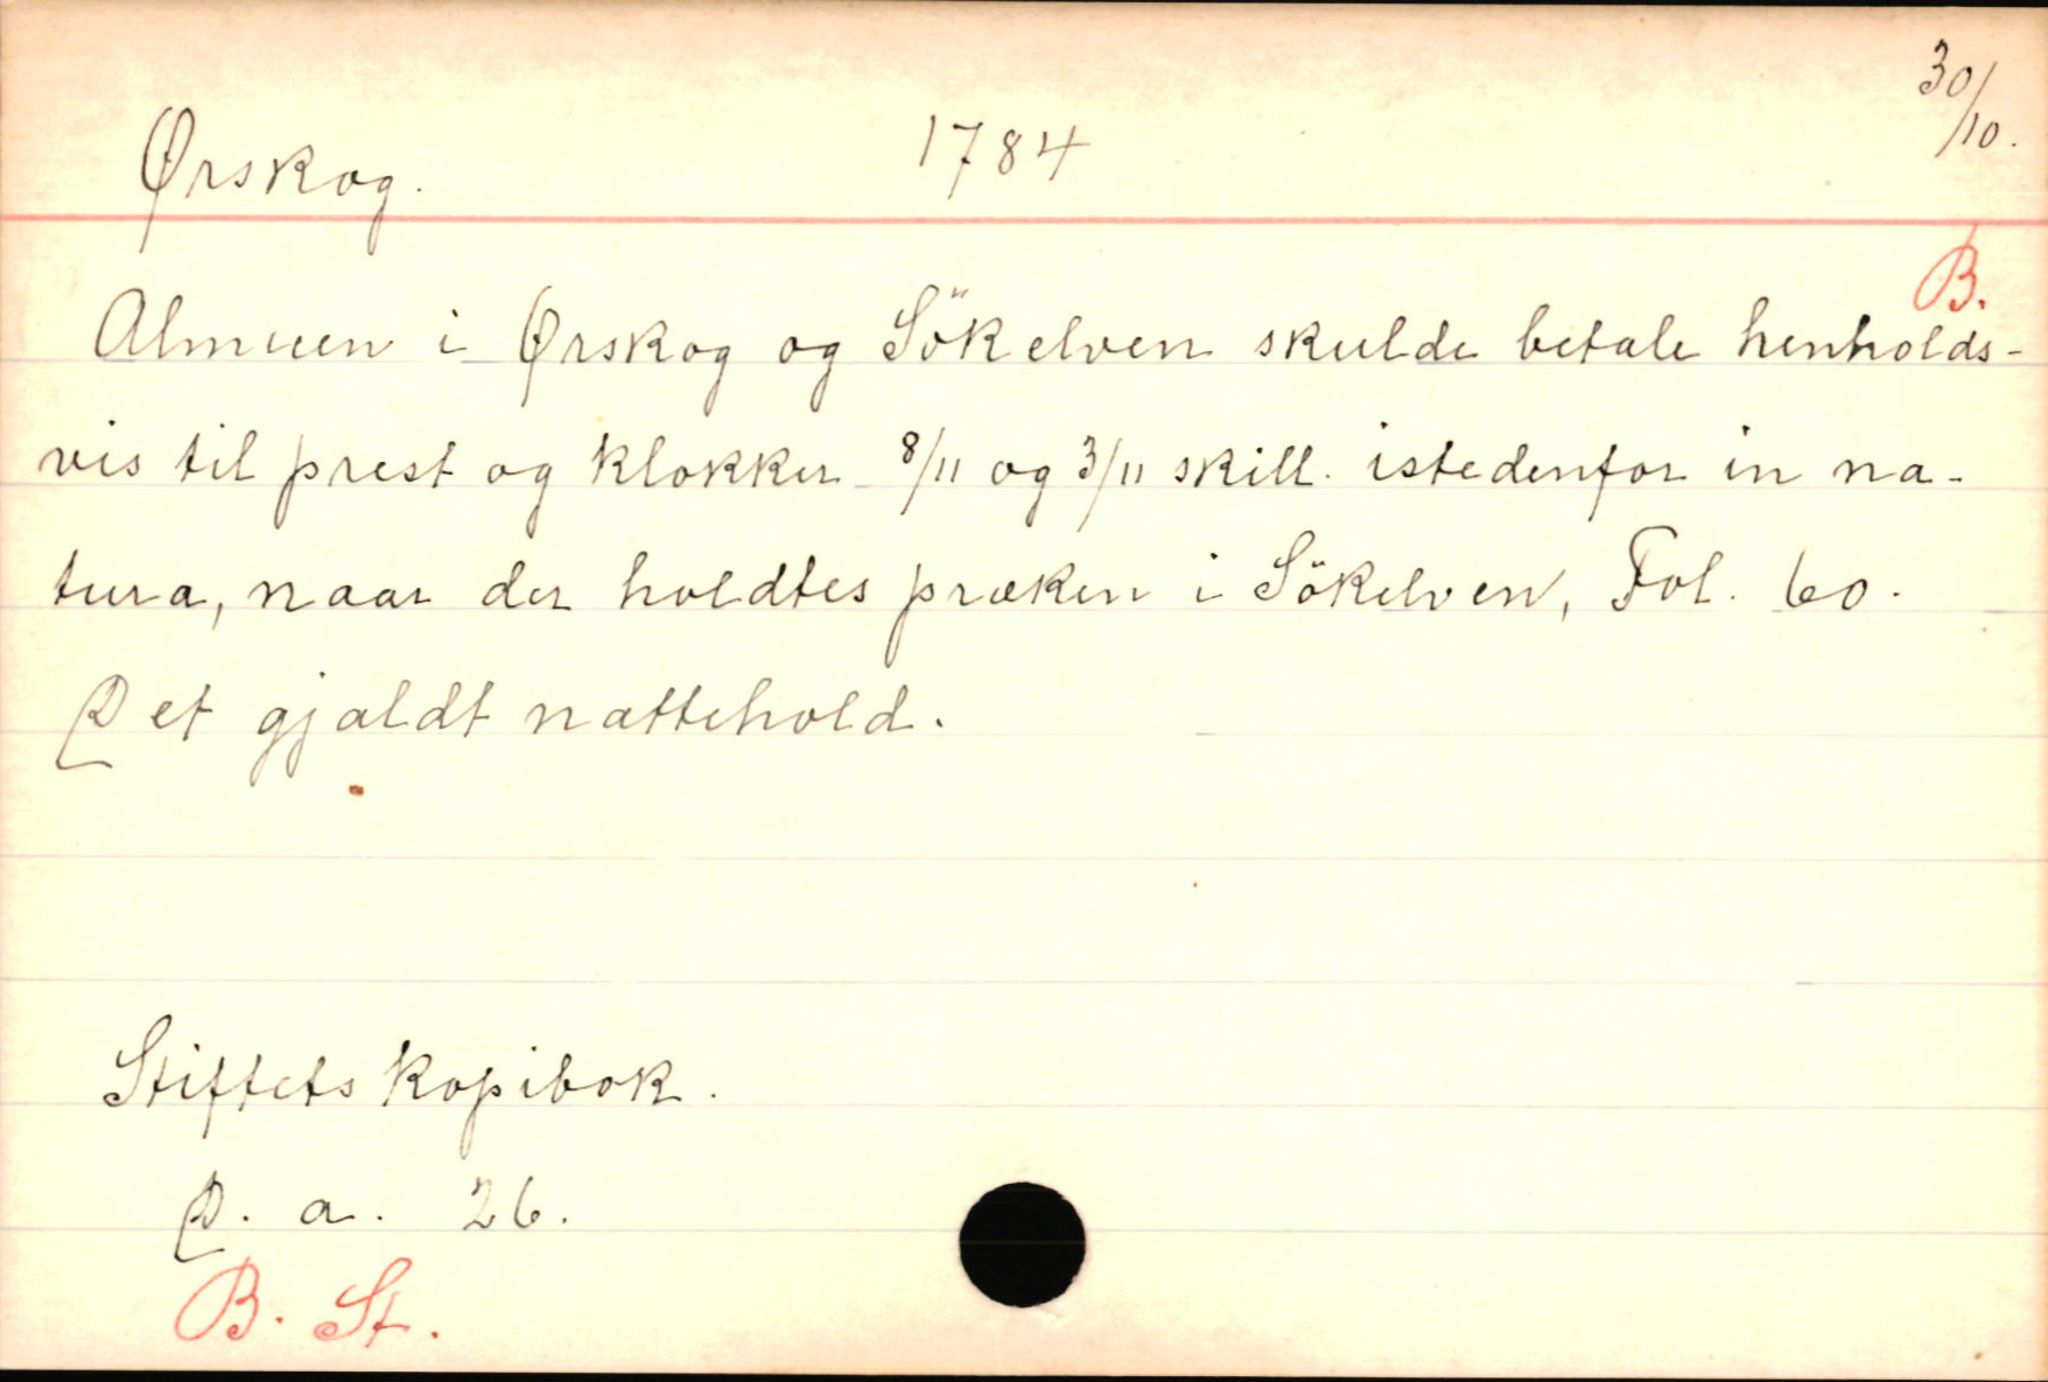 Ørskog. 1784 30/10.
B.
Almuen i Ørskog og Sökelven skulde betale henholds-
vis til prest og klokker 8/11 og 3/11 skill. istedenfor in na-
tura, naar der holdtes præken i Sökelven, Fol. 60.
Det gjaldt nattehold.
Stiftets kopibok.
D. a. 26.
B. St.